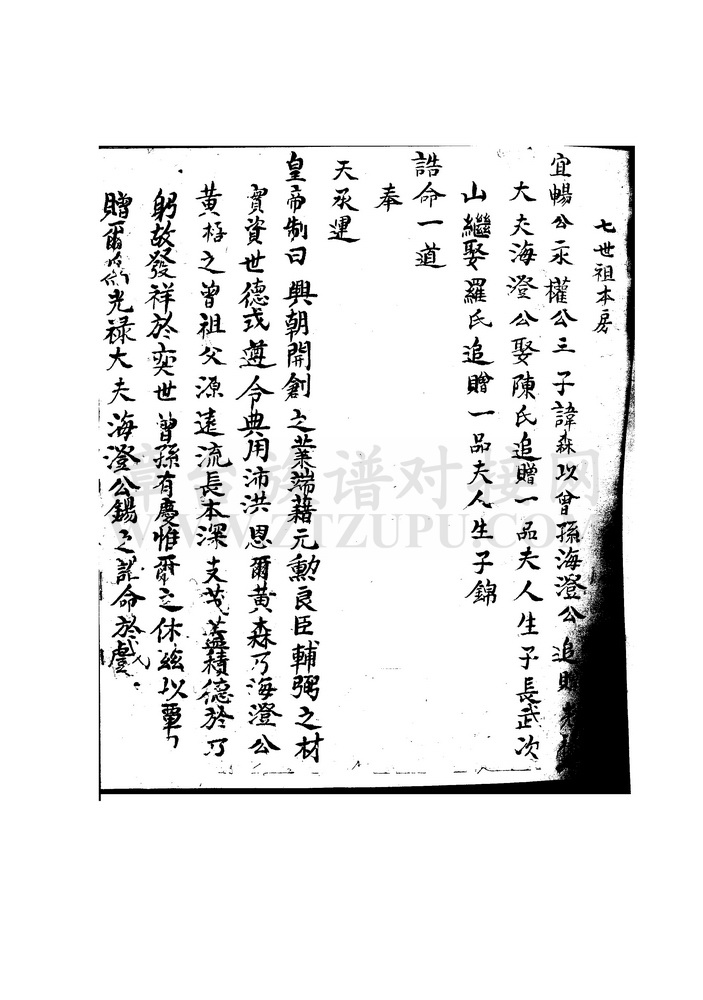 七世祖本房
宜暢公永權公三子諱森以曾孫海澄公追贈光祿
大夫海澄公娶陳氏追贈一品夫人生子長武次
山繼娶羅氏追贈一品夫人生子錦
誥命一道
奉
天承運
皇帝制曰興朝開創之業端藉元勲良臣輔弼之材
實資世德式遵令典用沛洪恩爾黄森乃海澄公
黄梧之曾祖父源遠流長本深支茂蓋積德於乃
躬故發祥於奕世曾孫有慶惟爾之休兹以覃
贈爾為光禄大夫海澄公錫之誥命於戲
章台族谱对接网
WWW.ZTZUPU.COM